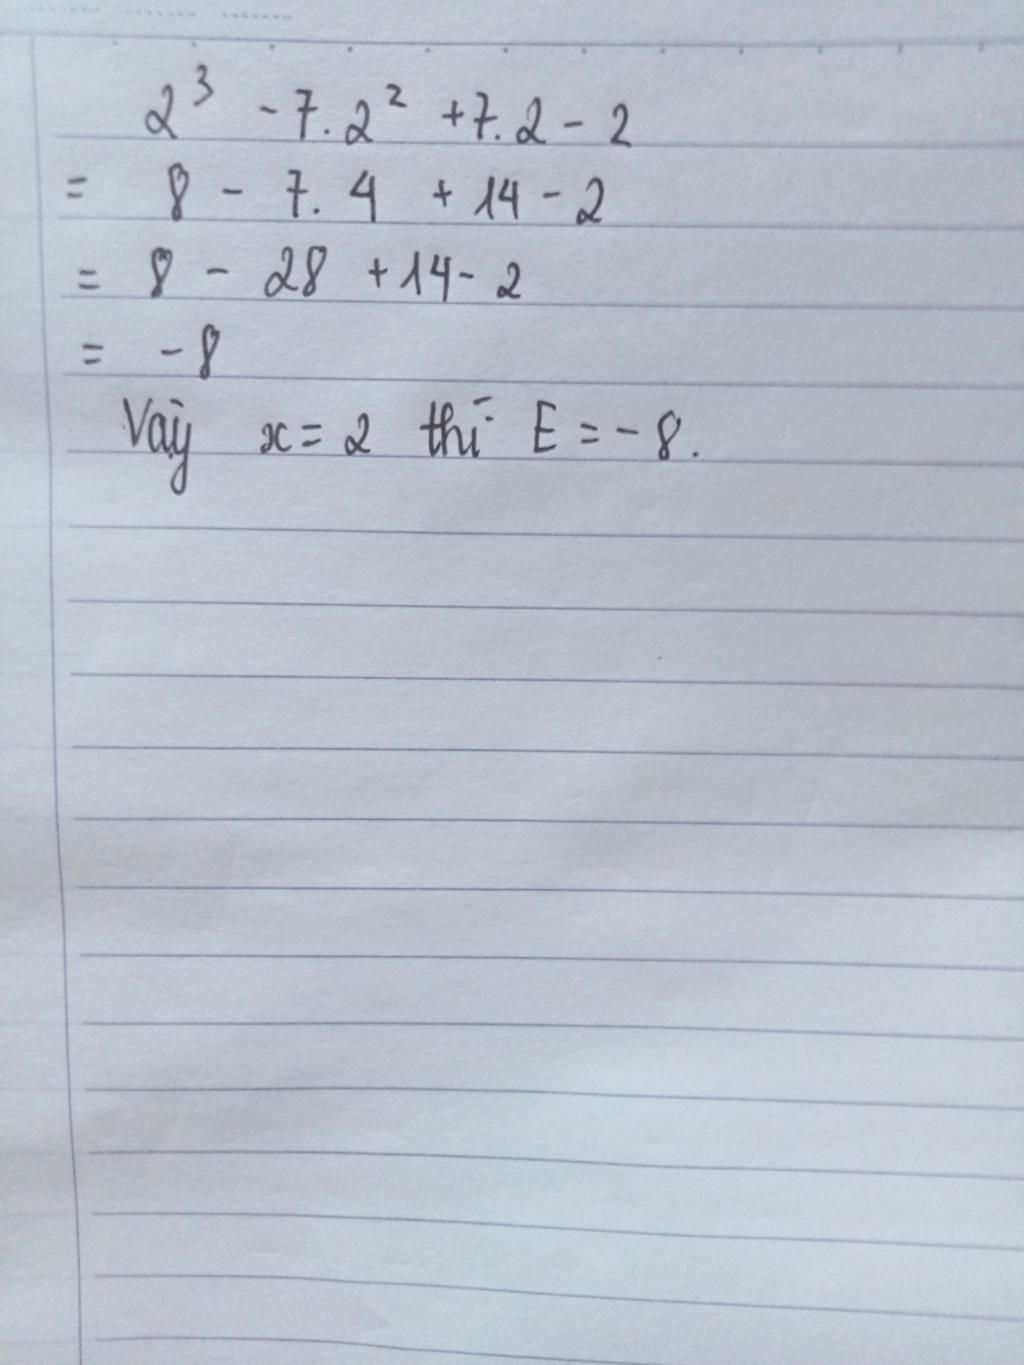 2³ - 7.2² + 7.2 - 2
= 8 - 7.4 + 14 - 2
= 8 - 28 + 14 - 2
= -8
Vậy x = 2 thì E = -8.